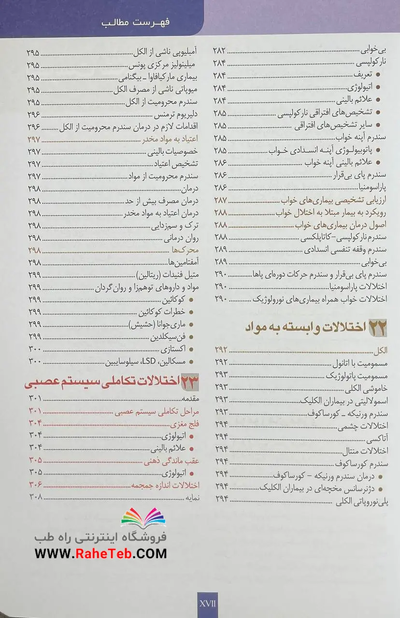 فهرست مطالب
بی‌خوابی ۲۸۲
نارکولپسی ۲۸۴
● تعریف ۲۸۴
● اتیولوژی ۲۸۴
● علائم بالینی ۲۸۴
● تشخیص‌های افتراقی نارکولپسی ۲۸۵
● سایر تشخیص‌های افتراقی ۲۸۵
سندرم آپنه خواب ۲۸۵
● پاتوبیولوژی آپنه انسدادی خواب ۲۸۵
● علائم بالینی آپنه خواب ۲۸۶
سندرم پای بی‌قرار ۲۸۶
پاراسومنیا ۲۸۶
ارزیابی تشخیصی بیماری‌های خواب ۲۸۷
رویکرد به بیمار مبتلا به اختلال خواب ۲۸۸
اصول درمان بیماری‌های خواب ۲۸۸
سندرم نارکولپسی-کاتاپلکسی ۲۸۸
سندرم وقفه تنفسی انسدادی ۲۸۹
بی‌خوابی ۲۸۹
سندرم پای بی‌قرار و سندرم حرکات دوره‌ای پاها ۲۹۰
اختلالات پاراسومنیا ۲۹۰
اختلالات خواب همراه بیماری‌های نورولوژیک ۲۹۰
۲۲ اختلالات وابسته به مواد
الکل ۲۹۲
مسمومیت با اتانول ۲۹۲
مسمومیت پاتولوژیک ۲۹۲
خاموشی الکلی ۲۹۳
اسمولالیتی در بیماران الکلیک ۲۹۳
سندرم ورنیکه - کورساکوف ۲۹۳
اختلالات چشمی ۲۹۴
آتاکسی ۲۹۴
اختلالات منتال ۲۹۴
سندرم کورساکوف ۲۹۴
● درمان سندرم ورنیکه - کورساکوف ۲۹۴
● دژنرسانس مخچه‌ای در بیماران الکلیک ۲۹۴
پلی‌نوروپاتی الکلی ۲۹۴
آمبلیوپی ناشی از الکل ۲۹۵
میلینولیز مرکزی پونس ۲۹۵
بیماری مارکیافاوا - بیگنامی ۲۹۵
میوپاتی ناشی از مصرف الکل ۲۹۵
سندرم محرومیت از الکل ۲۹۵
دلیریوم ترمنس ۲۹۶
اقدامات لازم در درمان سندرم محرومیت از الکل ۲۹۶
اعتیاد به مواد مخدر ۲۹۷
خصوصیات بالینی ۲۹۷
تشخیص اعتیاد ۲۹۷
سندرم محرومیت از مواد ۲۹۷
درمان ۲۹۸
درمان مصرف بیش از حد ۲۹۸
درمان اعتیاد به مواد مخدر ۲۹۸
ترک و سم‌زدایی ۲۹۸
روان درمانی ۲۹۸
محرک‌ها ۲۹۸
آمفتامین‌ها ۲۹۸
متیل فنیدات (ریتالین) ۲۹۹
مواد و داروهای توهم‌زا و روان‌گردان ۲۹۹
● کوکائین ۲۹۹
● خطرات کوکائین ۲۹۹
● ماری‌جوانا (حشیش) ۲۹۹
● فن‌سیکلدین ۲۹۹
● اکستازی ۳۰۰
● مسکالین، LSD، سیلوسایبین ۳۰۰
۲۳ اختلالات تکاملی سیستم عصبی
مقدمه ۳۰۱
مراحل تکاملی سیستم عصبی ۳۰۱
فلج مغزی ۳۰۴
● اتیولوژی ۳۰۴
● علائم بالینی ۳۰۴
عقب ماندگی ذهنی ۳۰۵
● اتیولوژی ۳۰۵
اختلالات اندازه جمجمه ۳۰۶
نمایه ۳۰۸
فروشگاه اینترنتی راه طب
www.RaheTeb.com
XVII